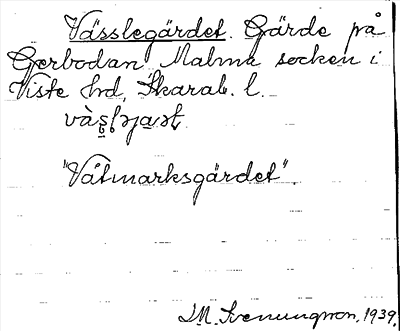 Vässlegärdet. Gärde på
Gerbodan Malma socken i
Viste hd, Skarab. l.
"Våtmarksgärdet".
M. Svenungsson, 1939.